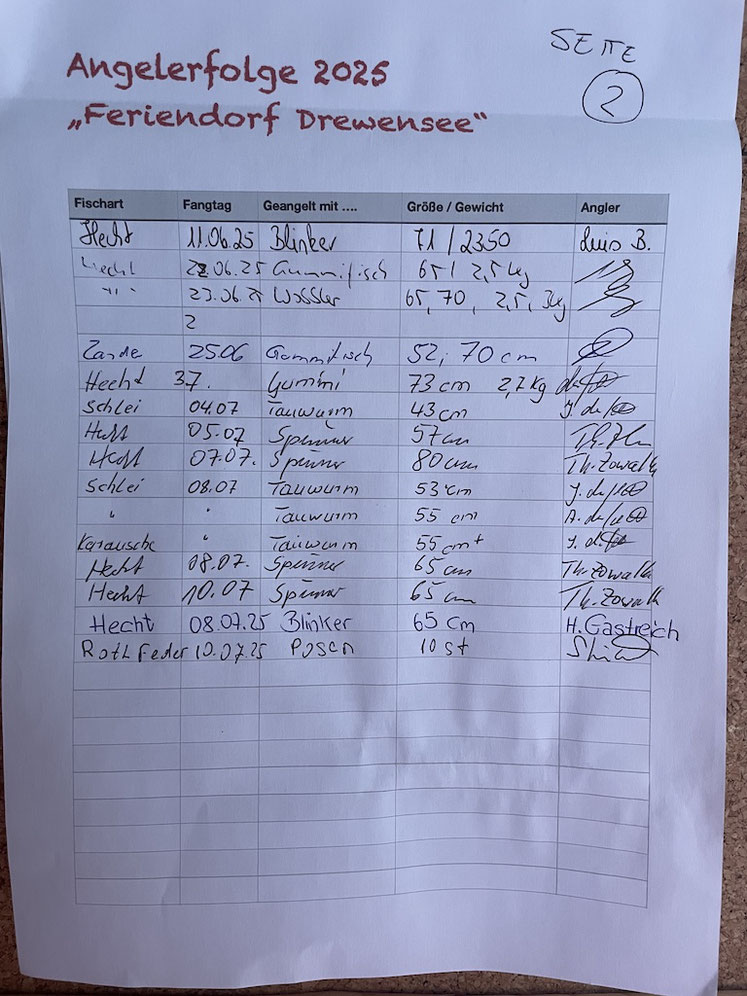 SEITE
2
Angelerfolge 2025
„Feriendorf Drewensee“
Fischart Fangtag Geangelt mit .... Größe / Gewicht Angler
Hecht 11.06.25 Blinker 71 / 2350 Luis B.
Hecht 22.06.25 Gummifisch 65 / 2,5 kg
"" 23.06.25 Wobbler 65, 70, 2,5, 3kg
2
Zande 25.06 Gummifisch 52, 70 cm
Hecht 3.7. Gummi 73 cm 2,7 kg
Schlei 04.07 Tauwurm 43 cm
Hecht 05.07 Spinner 57 cm
Hecht 07.07. Spinner 80 cm Th. Zowalk
Schlei 08.07 Tauwurm 53 cm
" " Tauwurm 55 cm
Karausche " Tauwurm 55 cm+
Hecht 08.07. Spinner 65 cm Th. Zowalk
Hecht 10.07 Spinner 65 cm Th. Zowalk
Hecht 08.07.25 Blinker 65 cm H. Gastreich
Rothfeder 10.07.25 Posen 10 st